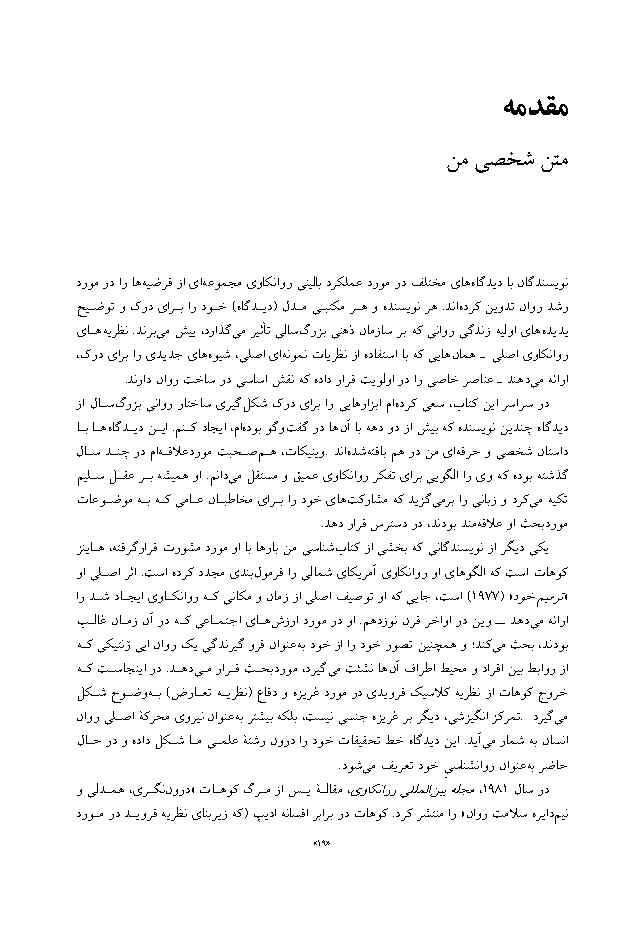 مقدمه
متن شخصی من
نویسندگان با دیدگاه‌های مختلف در مورد عملکرد بالینی روانکاوی مجموعه‌ای از فرضیه‌ها را در مورد
رشد روان تدوین کرده‌اند. هر نویسنده و هر مکتبی مدل (دیدگاه) خود را برای درک و توضیح
پدیده‌های اولیه زندگی روانی که بر سازمان ذهنی بزرگسالی تأثیر می‌گذارد، پیش می‌برند. نظریه‌های
روانکاوی اصلی ـ همان‌هایی که با استفاده از نظریات نمونه‌ای اصلی، شیوه‌های جدیدی را برای درک،
ارائه می‌دهند ـ عناصر خاصی را در اولویت قرار داده که نقش اساسی در ساخت روان دارند.
در سراسر این کتاب، سعی کرده‌ام ابزارهایی را برای درک شکل‌گیری ساختار روانی بزرگسال از
دیدگاه چندین نویسنده که بیش از دو دهه با آن‌ها در گفت‌وگو بوده‌ام، ایجاد کنم. این دیدگاه‌ها با
داستان شخصی و حرفه‌ای من در هم بافته‌شده‌اند. وینیکات، هم‌صحبت موردعلاقه‌ام در چند سال
گذشته بوده که وی را الگویی برای تفکر روانکاوی عمیق و مستقل می‌دانم. او همیشه بر عقل سلیم
تکیه می‌کرد و زبانی را برمی‌گزید که مشارکت‌های خود را برای مخاطبان عامی که به موضوعات
موردبحث او علاقه‌مند بودند، در دسترس قرار دهد.
یکی دیگر از نویسندگانی که بخشی از کتاب‌شناسی من بارها با او مورد مشورت قرارگرفته، هاینز
کوهات است که الگوهای او روانکاوی آمریکای شمالی را فرمول‌بندی مجدد کرده است. اثر اصلی او
«ترمیم خود» (۱۹۷۷) است، جایی که او توصیف اصلی از زمان و مکانی که روانکاوی ایجاد شد را
ارائه می‌دهد ـ وین در اواخر قرن نوزدهم. او در مورد ارزش‌های اجتماعی که در آن زمان غالب
بودند، بحث می‌کند؛ و همچنین تصور خود را از خود به‌عنوان فرو رندگیرنده یک روان ایی ژنتیکی که
از روابط بین افراد و محیط اطراف آن‌ها نشئت می‌گیرد، موردبحث قرار می‌دهد. در اینجاست که
خروج کوهات از نظریه کلاسیک فرویدی در مورد غریزه و دفاع (نظریه تعارض) به‌وضوح شکل
می‌گیرد. تمرکز انگیزشی، دیگر بر غریزه جنسی نیست، بلکه بیشتر به‌عنوان نیروی محرکهٔ اصلی روان
انسان به شمار می‌آید. این دیدگاه خط تحقیقات خود را درون رشتهٔ علمی ما شکل داده و در حال
حاضر به‌عنوان روانشناسی خود تعریف می‌شود.
در سال ۱۹۸۱، مجله بین‌المللی روانکاوی، مقالهٔ پس از مرگ کوهات «درون‌نگری، همدلی، و
نیم‌دایره سلامت روان» را منتشر کرد. کوهات در برابر افسانه ادیپ (که زیربنای نظریه فروید در مورد
«۱۹»